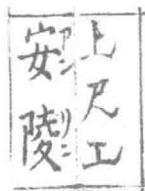 上尺工
安陵